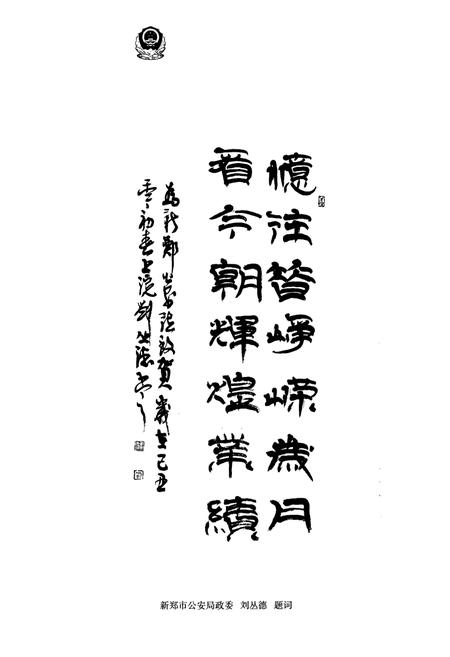 憶往昔崢嶸歲月
看今朝輝煌業績
為新鄭致賀歲在己丑
初春上浣劉叢德書
新郑市公安局政委 刘丛德 题词